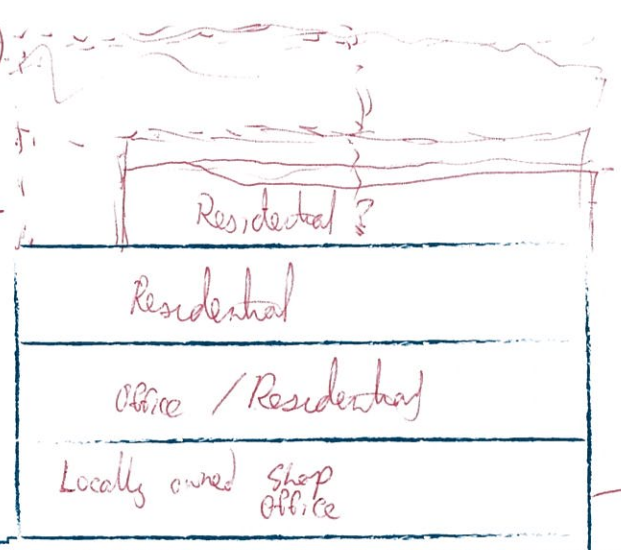 Residential ?
Residential
Office / Residential
Locally owned Shop
Office